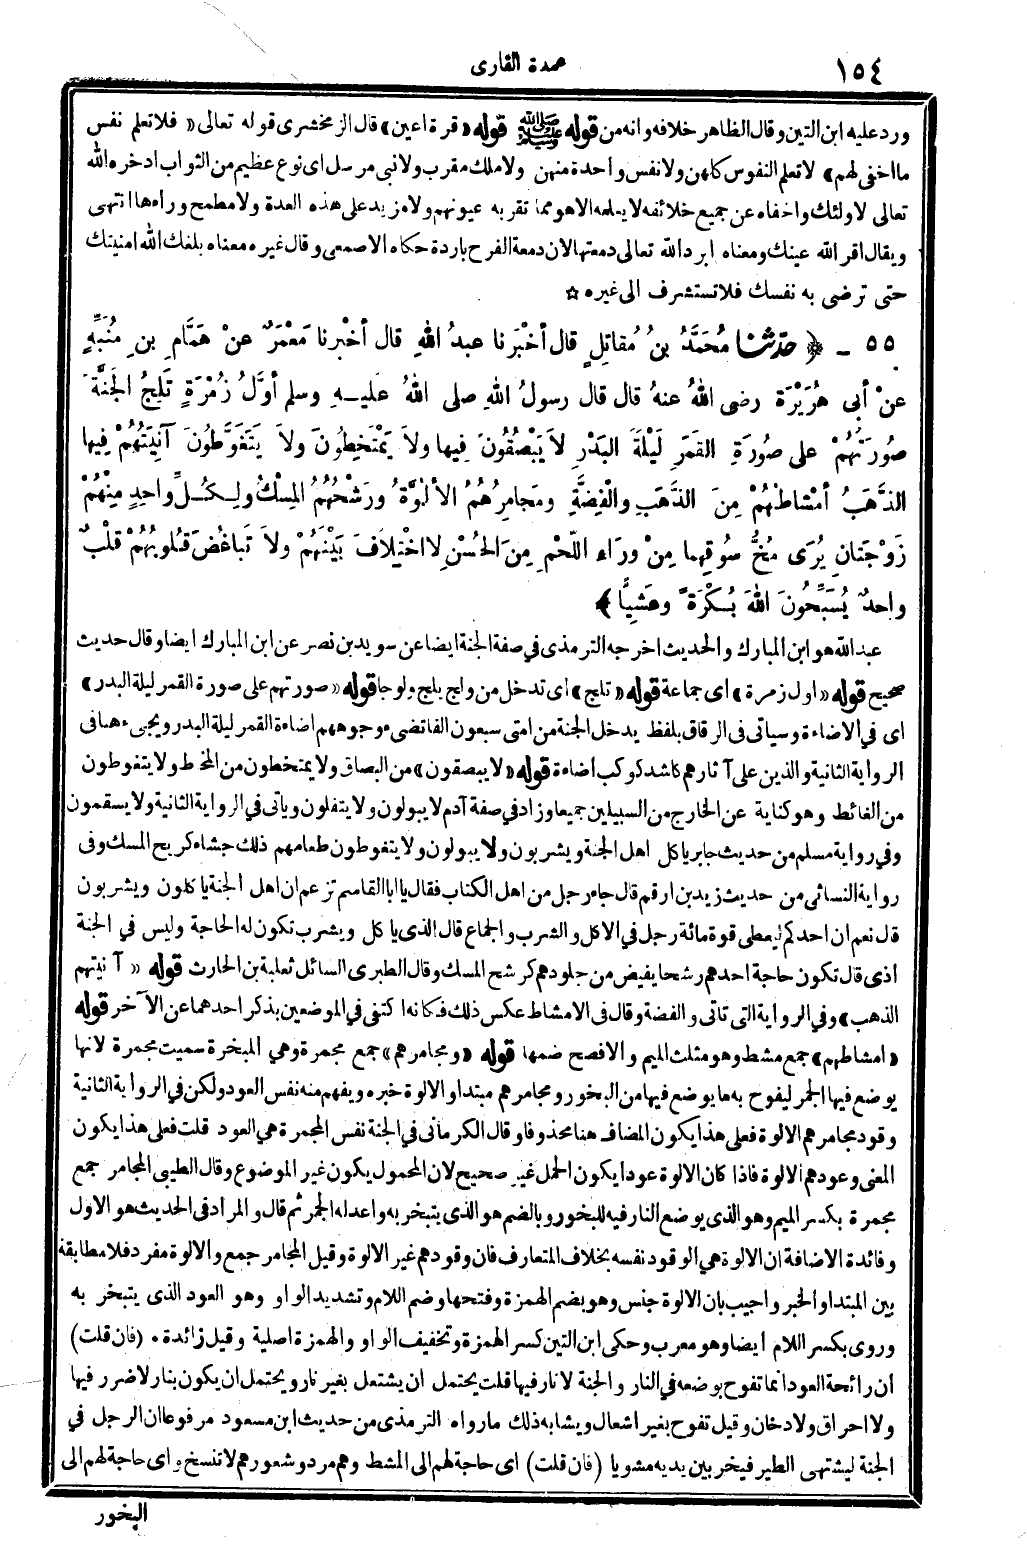 ١٥٤
عمدة القارى
ورد عليه ابن التين وقال الظاهر خلافه وانه من قوله ﷺ قوله «قرة اعين» قال الزمخشرى قوله تعالى «فلا تعلم نفس
ما اخفى لهم» لا تعلم النفوس كلهن ولا نفس واحدة منهن ولا ملك مقرب ولا نبى مرسل اى نوع عظيم من الثواب ادخره الله
تعالى لاولئك واخفاه عن جميع خلائقه لا يعلمه الا هو مما تقر به عيونهم ولا مزيد على هذه العدة ولا مطمح وراءها انتهى
ويقال اقر الله عينك ومعناه ابرد الله تعالى دمعتها لان دمعة الفرح باردة حكاه الاصمعى وقال غيره معناه بلغك الله امنيتك
حتى ترضى به نفسك فلا تستشرف الى غيره ☆
٥٥ ـ ﴿ حَدَّثَنَا مُحَمَّدُ بنُ مُقاتِلٍ قال أخْبَرَنا عبدُ اللهِ قال أخْبرنا مَعْمَرٌ عنْ هَمَّامِ بنِ مُنَبِّهٍ
عنْ أبى هُرَيْرَةَ رضى اللهُ عنهُ قال قال رسولُ اللهِ صلى اللهُ عليـهِ وسلم أوَّلُ زُمْرَةٍ تَلِجُ الجَنَّةَ
صُورَتُهُمْ على صُورَةِ القَمَرِ لَيْلَةَ البَدْرِ لاَ يَبْصُقُونَ فِيها ولاَ يَمْتَخِطُونَ ولاَ يَتَغَوَّطُونَ آنِيَتُهُمْ فِيها
الذَّهَبُ أمْشاطُهُمْ مِنَ الذَّهَبِ والْفِضَّةِ ومَجامِرُهُمُ الألُوَّةُ ورَشْحُهُمُ المِسْكُ ولِـكُـلِّ واحِدٍ مِنْهُمْ
زَوْجَتانِ يُرَى مُخُّ سُوقِهِما مِنْ ورَاءِ اللَّحْمِ مِنَ الحُسْنِ لا اخْتِلاَفَ بَيْنَهُمْ ولاَ تَباغُضَ قُلوبُهُمْ قَلْبٌ
واحِدٌ يُسَبِّحُونَ اللهَ بُـكْرَةً وعَشِيًّا ﴾
عبد الله هو ابن المبارك والحديث اخرجه الترمذى فى صفة الجنة ايضا عن سويد بن نصر عن ابن المبارك ايضا وقال حديث
صحيح قوله «اول زمرة» اى جماعة قوله «تلج» اى تدخل من ولج يلج ولوجا قوله «صورتهم على صورة القمر ليلة البدر»
اى فى الاضاءة وسياتى فى الرقاق بلفظ يدخل الجنة من امتى سبعون الفا تضىء وجوههم اضاءة القمر ليلة البدر ويجىء هنا فى
الرواية الثانية والذين على آثارهم كاشد كوكب اضاءة قوله «لا يبصقون» من البصاق ولا يمتخطون من المخط ولا يتغوطون
من الغائط وهو كناية عن الخارج من السبيلين جميعا وزاد فى صفة آدم لا يبولون ولا يتفلون وياتى فى الرواية الثانية ولا يسقمون
وفى رواية مسلم من حديث جابر ياكل اهل الجنة ويشربون ولا يبولون ولا يتغوطون طعامهم ذلك جشاء كريح المسك وفى
رواية النسائى من حديث زيد بن ارقم قال جاء رجل من اهل الكتاب فقال يا ابا القاسم تزعم ان اهل الجنة ياكلون ويشربون
قال نعم ان احدكم ليعطى قوة مائة رجل فى الاكل والشرب والجماع قال الذى ياكل ويشرب تكون له الحاجة وليس فى الجنة
اذى قال تكون حاجة احدهم رشحا يفيض من جلودهم كرشح المسك وقال الطبرى السائل ثعلبة بن الحارث قوله «آنيتهم
الذهب» وفى الرواية التى تاتى والفضة وقال فى الامشاط عكس ذلك فكانه اكتفى فى الموضعين بذكر احدهما عن الآخر قوله
«امشاطهم» جمع مشط وهو مثلث الميم والافصح ضمها قوله «ومجامرهم» جمع مجمرة وهى المبخرة سميت مجمرة لانها
يوضع فيها الجمر ليفوح به ما يوضع فيها من البخور ومجامرهم مبتدا والالوة خبره ويفهم منه نفس العود ولكن فى الرواية الثانية
وقود مجامرهم الالوة فعلى هذا يكون المضاف هنا محذوفا وقال الكرمانى فى الجنة نفس المجمرة هى العود قلت فعلى هذا يكون
المعنى وعودهم الالوة فاذا كان الالوة عودا يكون الحمل غير صحيح لان المحمول يكون غير الموضوع وقال الطيبى المجامر جمع
مجمرة بكسر الميم وهو الذى يوضع النار فيه للبخور وبالضم هو الذى يتبخر به واعد له الجمر ثم قال والمراد فى الحديث هو الاول
وفائدة الاضافة ان الالوة هى الوقود نفسه بخلاف المتعارف فان وقودهم غير الالوة وقيل المجامر جمع والالوة مفرد فلا مطابقة
بين المبتدا والخبر واجيب بان الالوة جنس وهو بضم الهمزة وفتحها وضم اللام وتشديد الواو وهو العود الذى يتبخر به
وروى بكسر اللام ايضا وهو معرب وحكى ابن التين كسر الهمزة وتخفيف الواو والهمزة اصلية وقيل زائدة . (فان قلت)
ان رائحة العود انما تفوح بوضعه فى النار والجنة لا نار فيها قلت يحتمل ان يشتعل بغير نار ويحتمل ان يكون بنار لا ضرر فيها
ولا احراق ولا دخان وقيل تفوح بغير اشعال ويشابه ذلك ما رواه الترمذى من حديث ابن مسعود مرفوعا ان الرجل فى
الجنة ليشتهى الطير فيخر بين يديه مشويا (فان قلت) اى حاجة لهم الى المشط وهم مرد وشعورهم لا تنسخ واى حاجة لهم الى
البخور